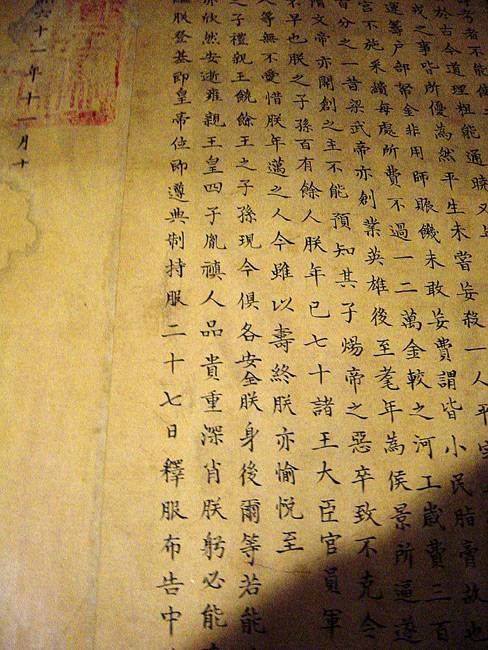 考者不能
於古今道理粗能通曉又
戎之事皆所優為然平生未嘗妄殺一人平
運籌戶部帑金非用師賑饑未敢妄費謂皆小民脂膏故也
宮不施采繢每處所費不過一二萬金較之河工歲費三百
百分之一昔梁武帝亦創業英雄後至耄年為侯景所逼遂
隋文帝亦開創之主不能預知其子煬帝之惡卒致不克令
不早也朕之子孫百有餘人朕年已七十諸王大臣官員軍
人等無不愛惜朕年邁之人今雖以壽終朕亦愉悅至
之子禮親王饒餘王之子孫現今俱各安全朕身後爾等若能
亦欣然安逝雍親王皇四子胤禛人品貴重深肖朕躬必能
繼朕登基即皇帝位即遵典制持服二十七日釋服布告中
六十一年十一月十